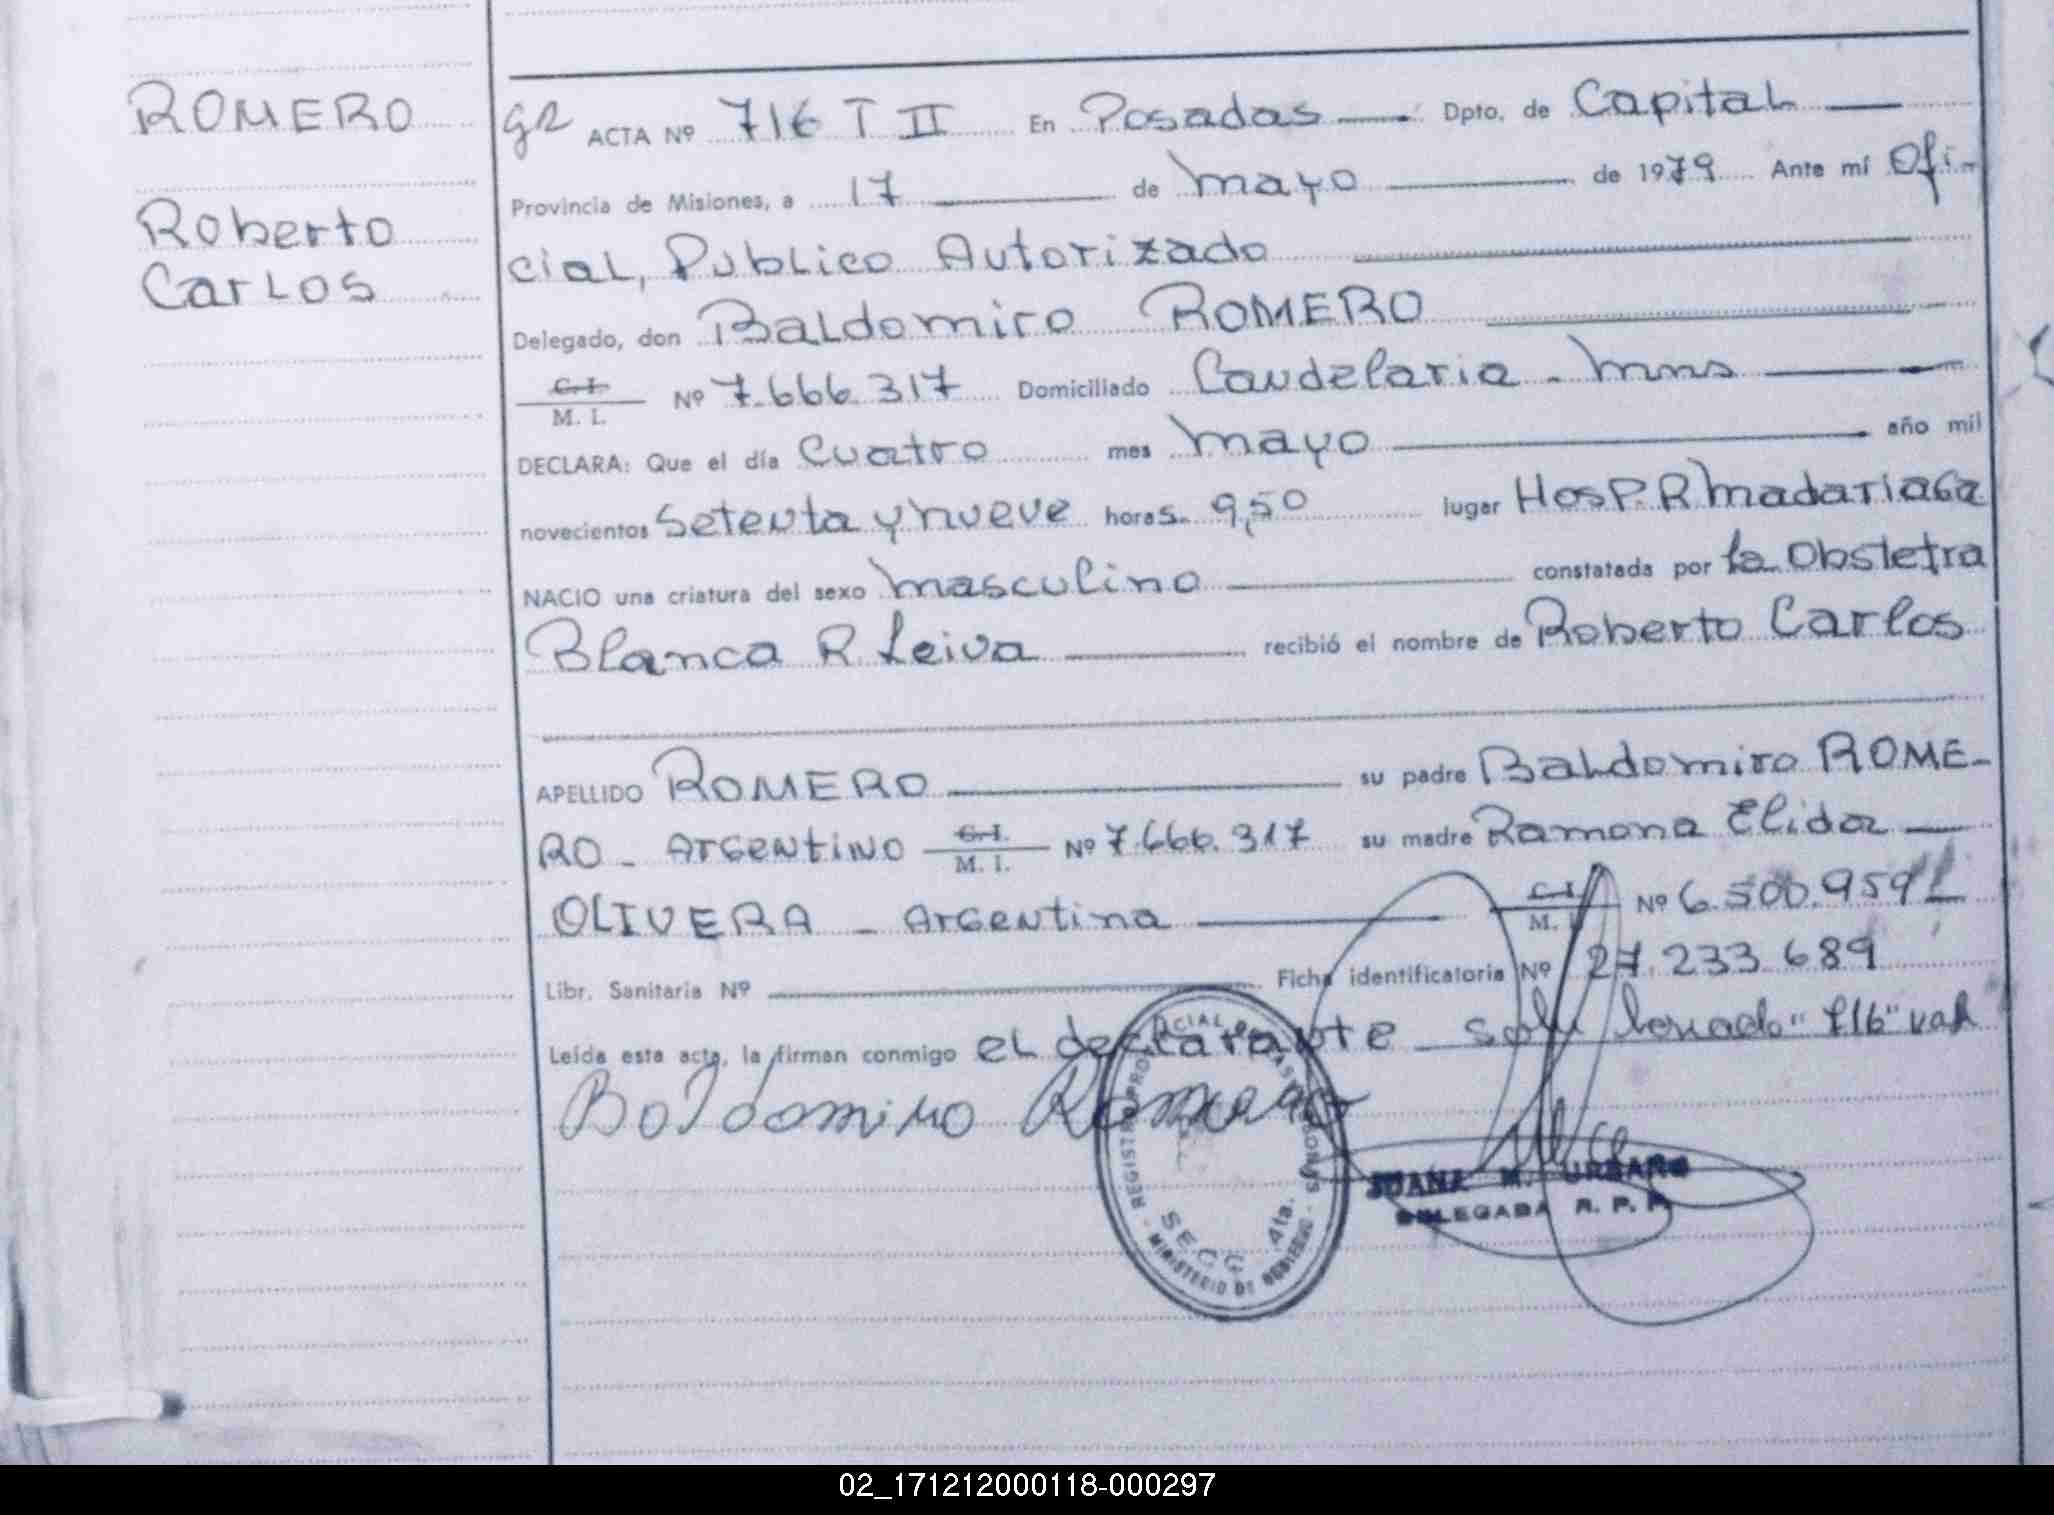 ROMERO
Roberto
CarLos
ACTA Nº 716 T II En Posadas Dpto. de CapitaL
Provincia de Misiones, a 17 de mayo de 1979 Ante mí Ofi-
ciaL, PubLico Autorizado
Delegado, don BaLdomiro ROMERO
C. I.
M. I. Nº 7.666.317 Domiciliado Candelaria - mns
DECLARA: Que el día cuatro mes mayo año mil
novecientos Setenta y nueve horas. 9,50 lugar Hosp. R madariaga
NACIO una criatura del sexo masculino constatada por la Obstetra
Blanca R Leiva recibió el nombre de Roberto Carlos
APELLIDO ROMERO su padre BaLdomiro ROME-
RO - Argentino C. I. M. I. Nº 7.666.317 su madre Ramona Elida
OLIVERA - Argentina C. I. M. I. Nº 6.500.959
Libr. Sanitaria Nº Ficha identificatoria Nº 27.233.689
Leída esta acta, la firman conmigo eL declarante "716" val
Baldomiro Romero
REGISTRO PROVINCIAL DE LAS PERSONAS
SECC. 4ta.
MINISTERIO DE GOBIERNO
JUANA M. URBANO
DELEGADA R. P. P.
02_171212000118-000297